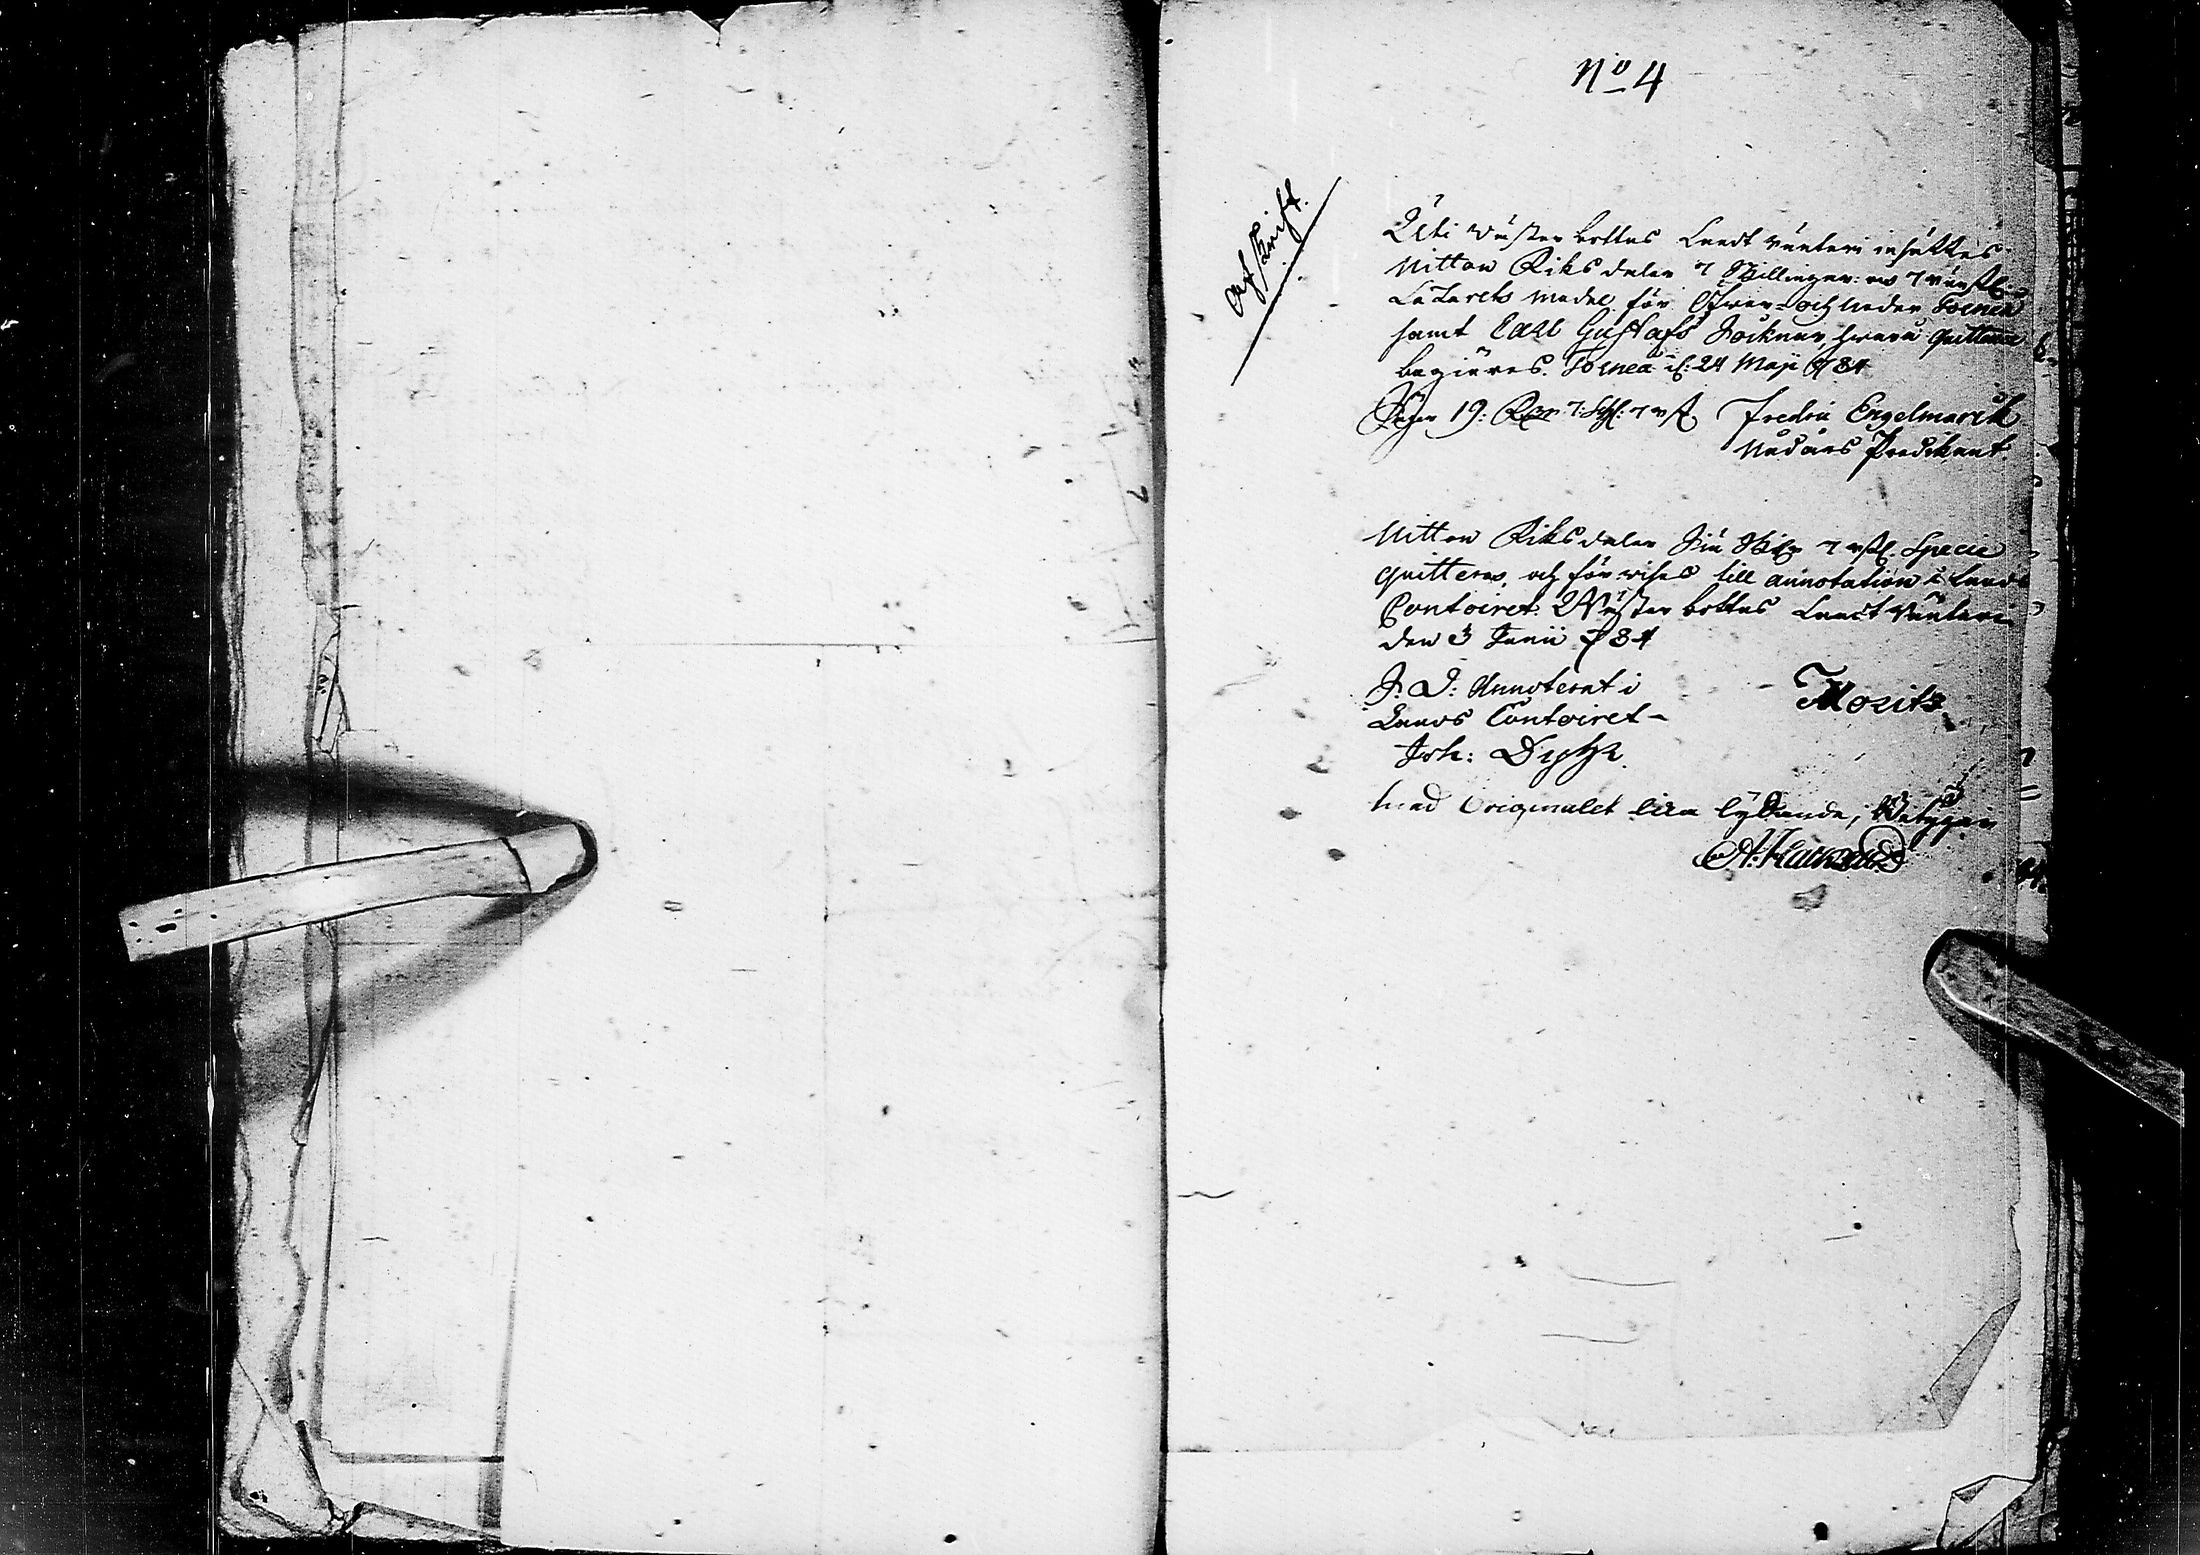 No 4
Afskrift.
Uti Wäster bottns Landt Ränteri insättes
Nitton Riksdaler 7 Skillingar 7 rundst.
Lazarets medel för Öfver- och Neder Torneå
samt Carl Gustafs Socknar, hwarå quittence
begiäres. Torneå d: 24 Maji 1784
Säger 19: Rdr 7: sk: 7 rst. Fredric Engelmarck
Nådårs Predikant.
Nitton Riksdaler Siu Skr 7 rst. Specie
quitteras, och för wises till annotation i Lands
Contoiret. Wäster bottns Landt Ränteri
den 3 Junii 784
J. D: Annoterat i
Lands Contoiret - Moritz
Joh:
Med Originalet lika lydande, Betygar